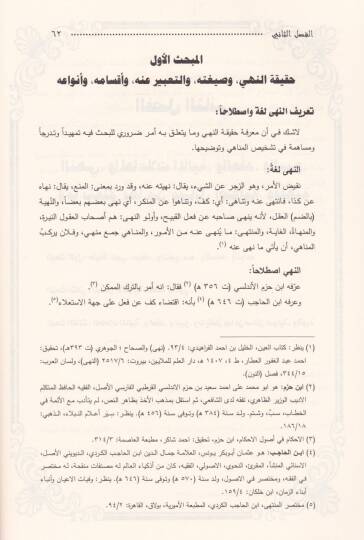 الفصل الثاني ٦٢
المبحث الأول
حقيقة النهي، وصيغته، والتعبير عنه، وأقسامه، وأنواعه
تعريف النهي لغة واصطلاحاً:
لاشك في أن معرفة حقيقة النهي وما يتعلق به أمر ضروري للبحث فيه تمهيداً وتدرجاً
ومساهمة في تشخيص المناهي وتوضيحها.
النهي لغة:
نقيض الأمر، وهو الزجر عن الشيء، يقال: نهيته عنه، وقد ورد بمعنى: المنع، يقال: نهاه
عن كذا، فانتهى عنه وتناهى: أي: كفّ، وتناهوا عن المنكر، أي نهى بعضهم بعضاً، والنُهية
(بالضم) العقل، لأنه ينهى صاحبه عن فعل القبيح، وأولو النهى: هم أصحاب العقول النيرة،
والمنهاة: الغاية، والمنتهى: ما يُنهى عنه من الأمور، والمناهي جمع منهي، وفلان يركب
المناهي، أن يأتي ما نهى عنه (١)
النهي اصطلاحاً:
عرّفه ابن حزم الأندلسي (ت ٣٥٦ هـ) (٢) فقال: انه أمر بالترك الممكن (٣).
وعرفه ابن الحاجب (ت ٦٤٦ هـ) (٤) بأنه: اقتضاء كف عن فعل على جهة الاستعلاء(٥).
(١) ينظر: كتاب العين، الخليل بن احمد الفراهيدي: ٩٣/٤ (نهى) والصحاح؛ الجوهري (ت ٣٩٣هـ)، تحقيق:
احمد عبد الغفور العطار، ط ٤، ١٤٠٧ هـ، دار العلم للملايين، بيروت: ٢٥١٧/٦ (نهى)، ولسان العرب:
٣٤٤/١٥، فصل (النون).
(٢) ابن حزم: هو ابو محمد على احمد سعيد بن حزم الاندلسي القرطبي الفارسي الأصل، الفقيه الحافظ المتكلم
الأديب الوزير الظاهري، تفقه لدى الشافعي، ثم استقل بمذهب الأخذ بظاهر النص، لم يتأدب مع الأئمة في
الخطاب، سبّ، وشتم، ولد سنة (٣٨٤ هـ) وتوفى سنة (٤٥٦ هـ). ينظر: سير أعلام النبلاء، الذهبي:
١٨٦/١٨.
(٣) الاحكام في أصول الاحكام، ابن حزم، تحقيق: احمد شاكر، مطبعة العاصمة: ٣١٤/٣.
(٤) ابن الحاجب: هو عثمان أبوبكر يونس، العلامة جمال الدين ابن الحاجب الكردي، الدويني الأصل،
الاسنائي المنشأ، المقرئ، النحوي، الأصولي، الفقيه، كان من أذكياء العالم له مصنفات منقحة، له مختصر
في الفقه، ومختصر في الاصول، ولد سنة (٥٧٠ هـ) وتوفى سنة (٦٤٦ هـ). ينظر: وفيات الاعيان وأنباء
أبناء الزمان، ابن خلكان: ١٥٩/٤.
(٥) مختصر المنتهى، ابن الحاجب الكردي، المطبعة الأميرية، بولاق، القاهرة: ٩٤/٢.